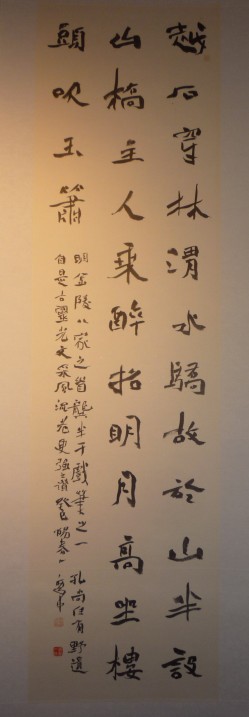 越石穿林渭水驕故於山半設
山橋主人乘醉招明月高坐樓
頭吹玉簫
明金陵八家之首龔半千戲筆之一 孔尚任有野遺
自是古靈光文采風流老更強之讚